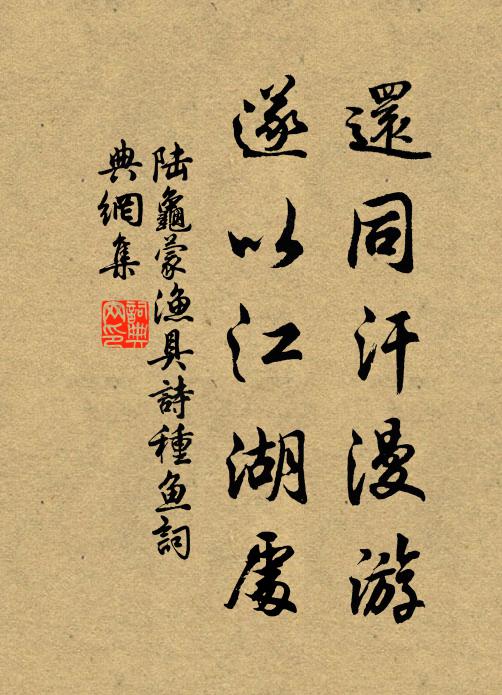 還同汗漫游
遂以江湖處
陆龜蒙漁具詩種鱼詞
典網集
詞典
网印